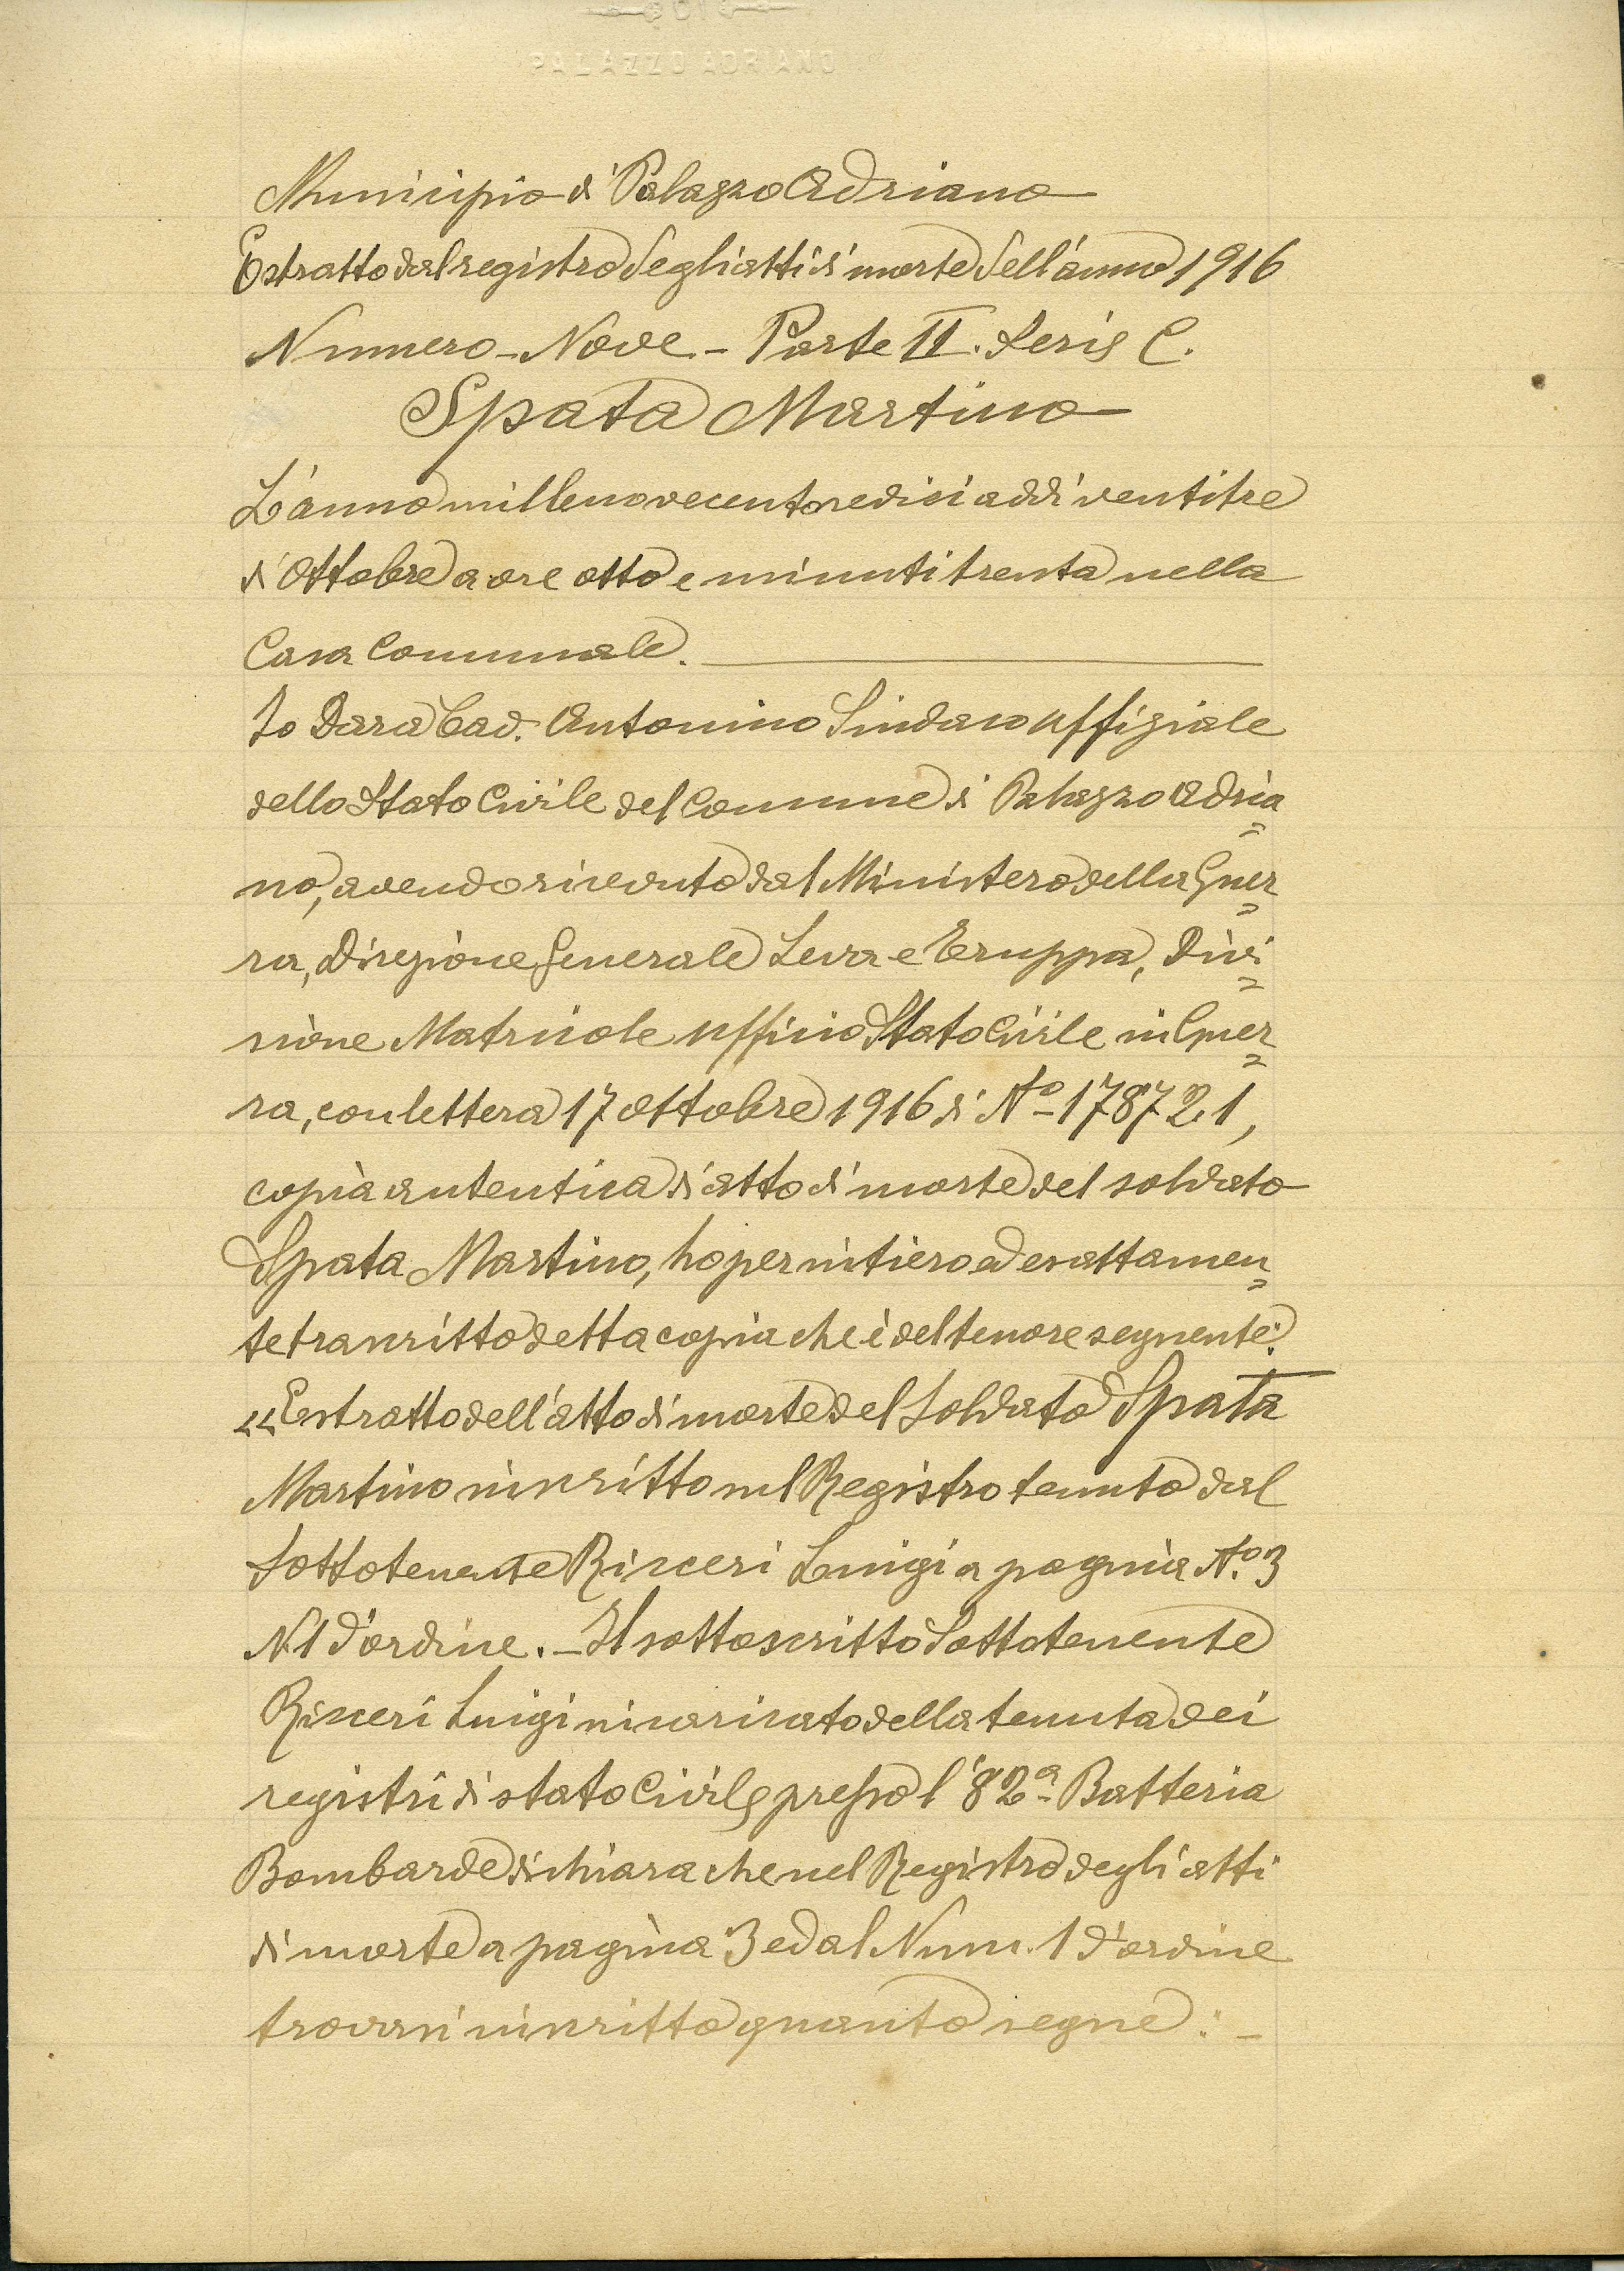 PALAZZO ADRIANO
Municipio di Palazzo Adriano
Estratto dal registro degli atti di morte dell'anno 1916
Numero - Nove - Parte II. Serie C.
Spata Martino
L'anno millenovecentosedici addì ventitre
di Ottobre a ore otto e minuti trenta nella
Casa Comunale.
Io Dara Cav. Antonino Sindaco Uffiziale
dello Stato Civile del Comune di Palazzo Adria=
no, avendo ricevuto dal Ministero della Guer=
ra, Direzione Generale Leva e Truppa, Divi=
sione Matricole Ufficio Stato Civile in Guer=
ra, con lettera 17 Ottobre 1916 di No- 178721,
copia autentica di atto di morte del soldato
Spata Martino, ho per intiero ed esattamen=
te trascritto detta copia che è del tenore seguente:
"Estratto dell'atto di morte del Soldato Spata
Martino inscritto nel Registro tenuto dal
Sottotenente Risceri Luigi a pagina No. 3
N. 1 d'ordine. - Il sottoscritto Sottotenente
Risceri Luigi incaricato della tenuta dei
registri di stato Civile presso l'82a- Batteria
Bombarde dichiara che nel Registro degli atti
di morte a pagina 3 ed al Num. 1 d'ordine
trovasi inscritto quanto segue: -